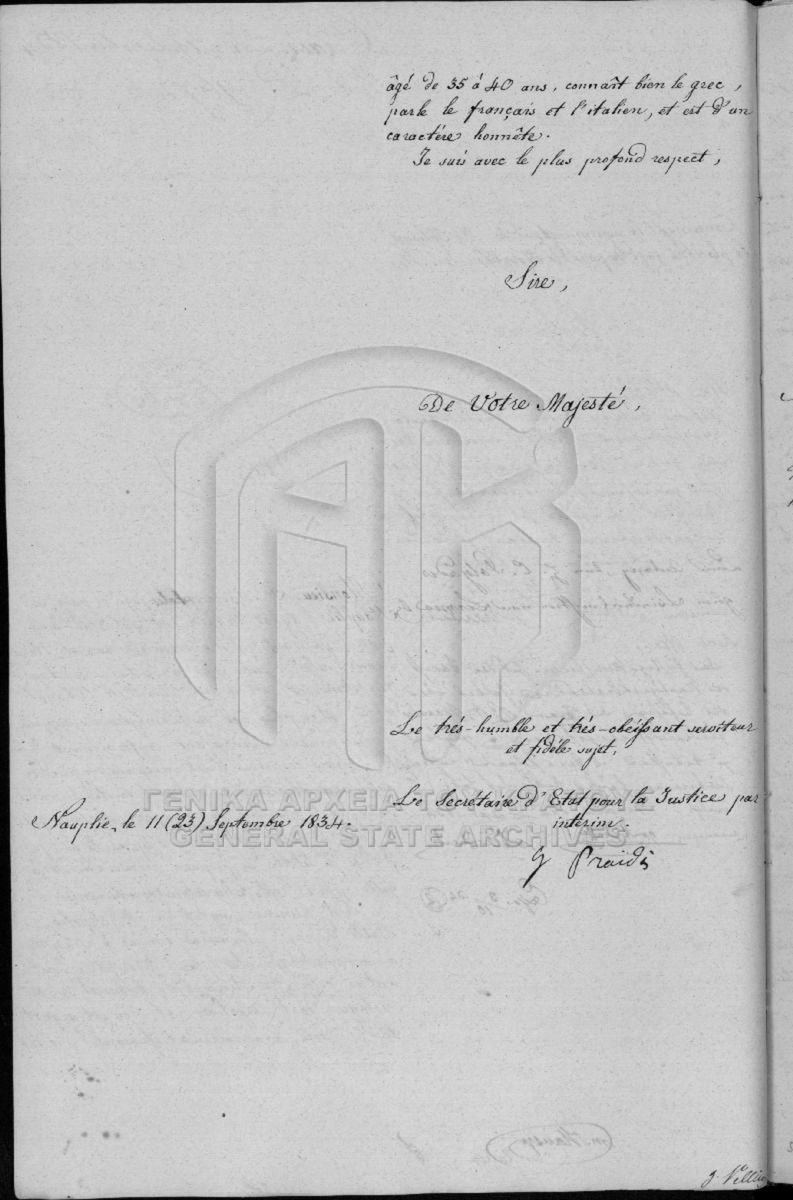 âgé de 35 à 40 ans, connaît bien le grec,
parle le français et l'italien, et est d'un
caractère honnête.
Je suis avec le plus profond respect,
Sire,
De Votre Majesté,
Le trés-humble et trés-obéissant serviteur
et fidéle sujet,
Le Secrétaire d'Etat pour la Justice par
interim.
Nauplie, le 11 (23) Septembre 1834.
G Praïdis
ΓΕΝΙΚΑ ΑΡΧΕΙΑ ΤΟΥ ΚΡΑΤΟΥΣ
GENERAL STATE ARCHIVES